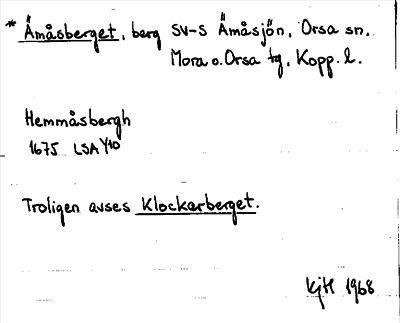 * Ämåsberget, berg SV-S Ämåsjön, Orsa sn.
Mora o. Orsa tg, Kopp. l.
Hemmåsbergh
1675 LSA Y10
Troligen avses Klockarberget.
KjH 1968